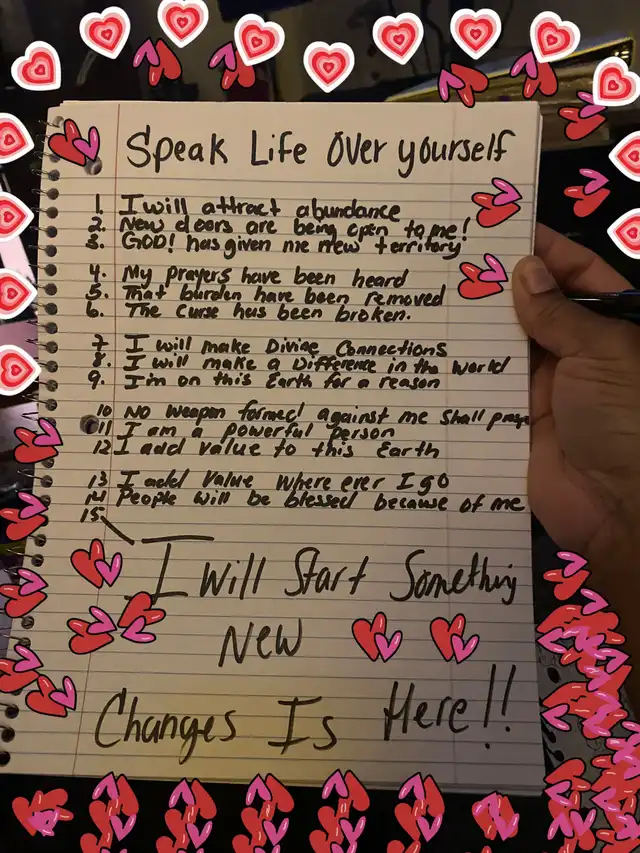 Speak Life Over yourself
1. I will attract abundance
2. New doors are being open to me!
3. GOD! has given me new territory
4. My prayers have been heard
5. That burden have been removed
6. The curse has been broken.
7. I will make Divine Connections
8. I will make a Difference in the world
9. I'm on this Earth for a reason
10 NO weapon formed against me shall
11 I am a powerful person
12 I add value to this Earth
13 I add value where ever I go
14 People will be blessed because of me
15.
I will Start Something
New
Changes Is Here!!